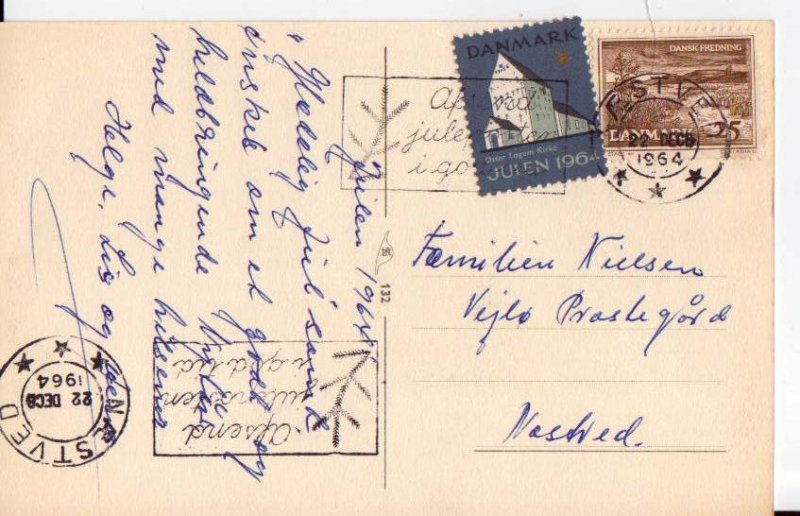 Julen 1964
"Glædelig Jul" samt
ønsket om et godt og
heldbringende Nytår
med mange hilsener
Helge, Lis og
DANMARK
Øster Løgum Kirke
JULEN 1964
DANSK FREDNING
DANMARK
25
NÆSTVED
22 DEC
1964
Afsend
juleposten
i god tid
132
Familien Nielsen
Vejlø Præstegård
Næstved.
Afsend
juleposten
i god tid
NÆSTVED
22 DEC
1964